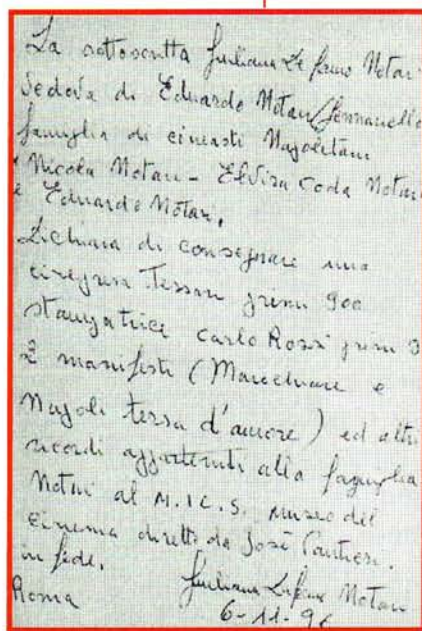 La sottoscritta Giuliana De Notari
Vedova di Eduardo Notari (Gennariello
famiglia di cineasti Napoletani
Nicola Notari - Elvira Coda Notari
e Eduardo Notari.
Dichiara di consegnare una
cinepresa primi 900
stampatrice Carlo Rossi primi 9
2 manifesti (Marechiare e
Napoli terra d'amore) ed altri
ricordi appartenuti alla famiglia
Notari al M.I.C.S. museo del
cinema diretto da José Pantieri.
in fede.
Giuliana Notari
Roma 6-11-96